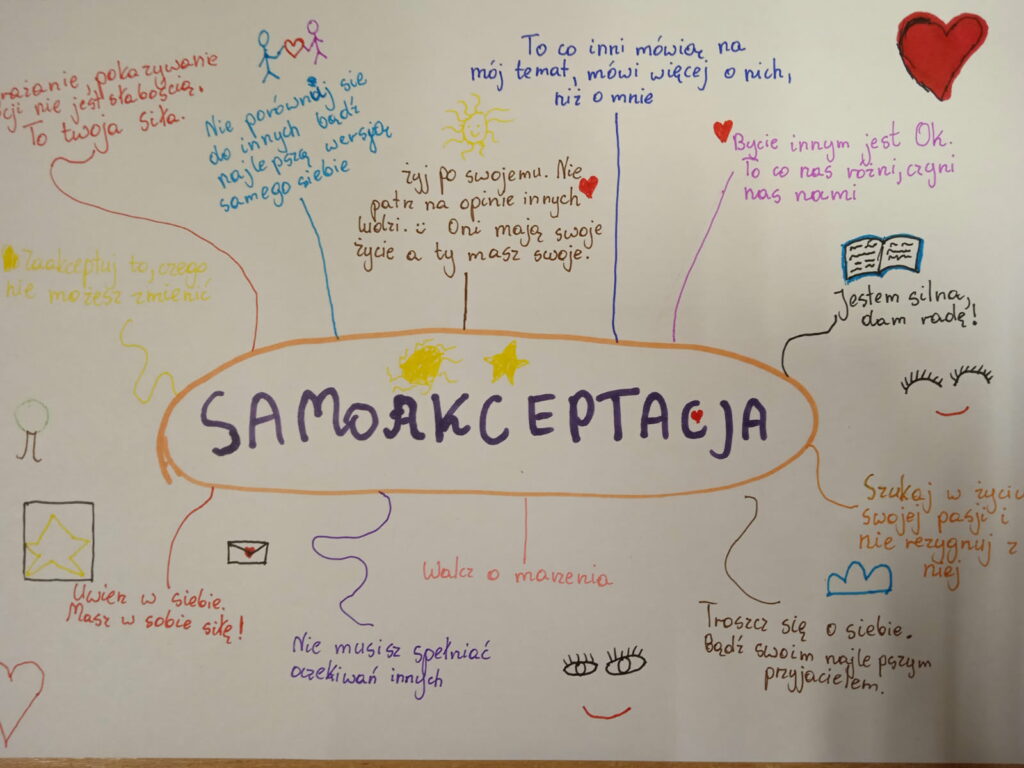 rażanie, pokazywanie
cji nie jest słabością.
To twoja siła.
Nie porównaj sie
do innych bądź
najlepszą wersją
samego siebie
żyj po swojemu. Nie
patrz na opinie innych
ludzi. Oni mają swoje
życie a ty masz swoje.
To co inni mówią na
mój temat, mówi więcej o nich,
niż o mnie
Bycie innym jest Ok.
To co nas różni, czyni
nas nami
Zaakceptuj to, czego
nie możesz zmienić
Jestem silna,
dam radę!
SAMOAKCEPTACJA
Szukaj w życiu
swojej pasji i
nie rezygnuj z
niej
Uwierz w siebie.
Masz w sobie siłę!
Nie musisz spełniać
oczekiwań innych
Walcz o marzenia
Troszcz się o siebie.
Bądź swoim najlepszym
przyjacielem.